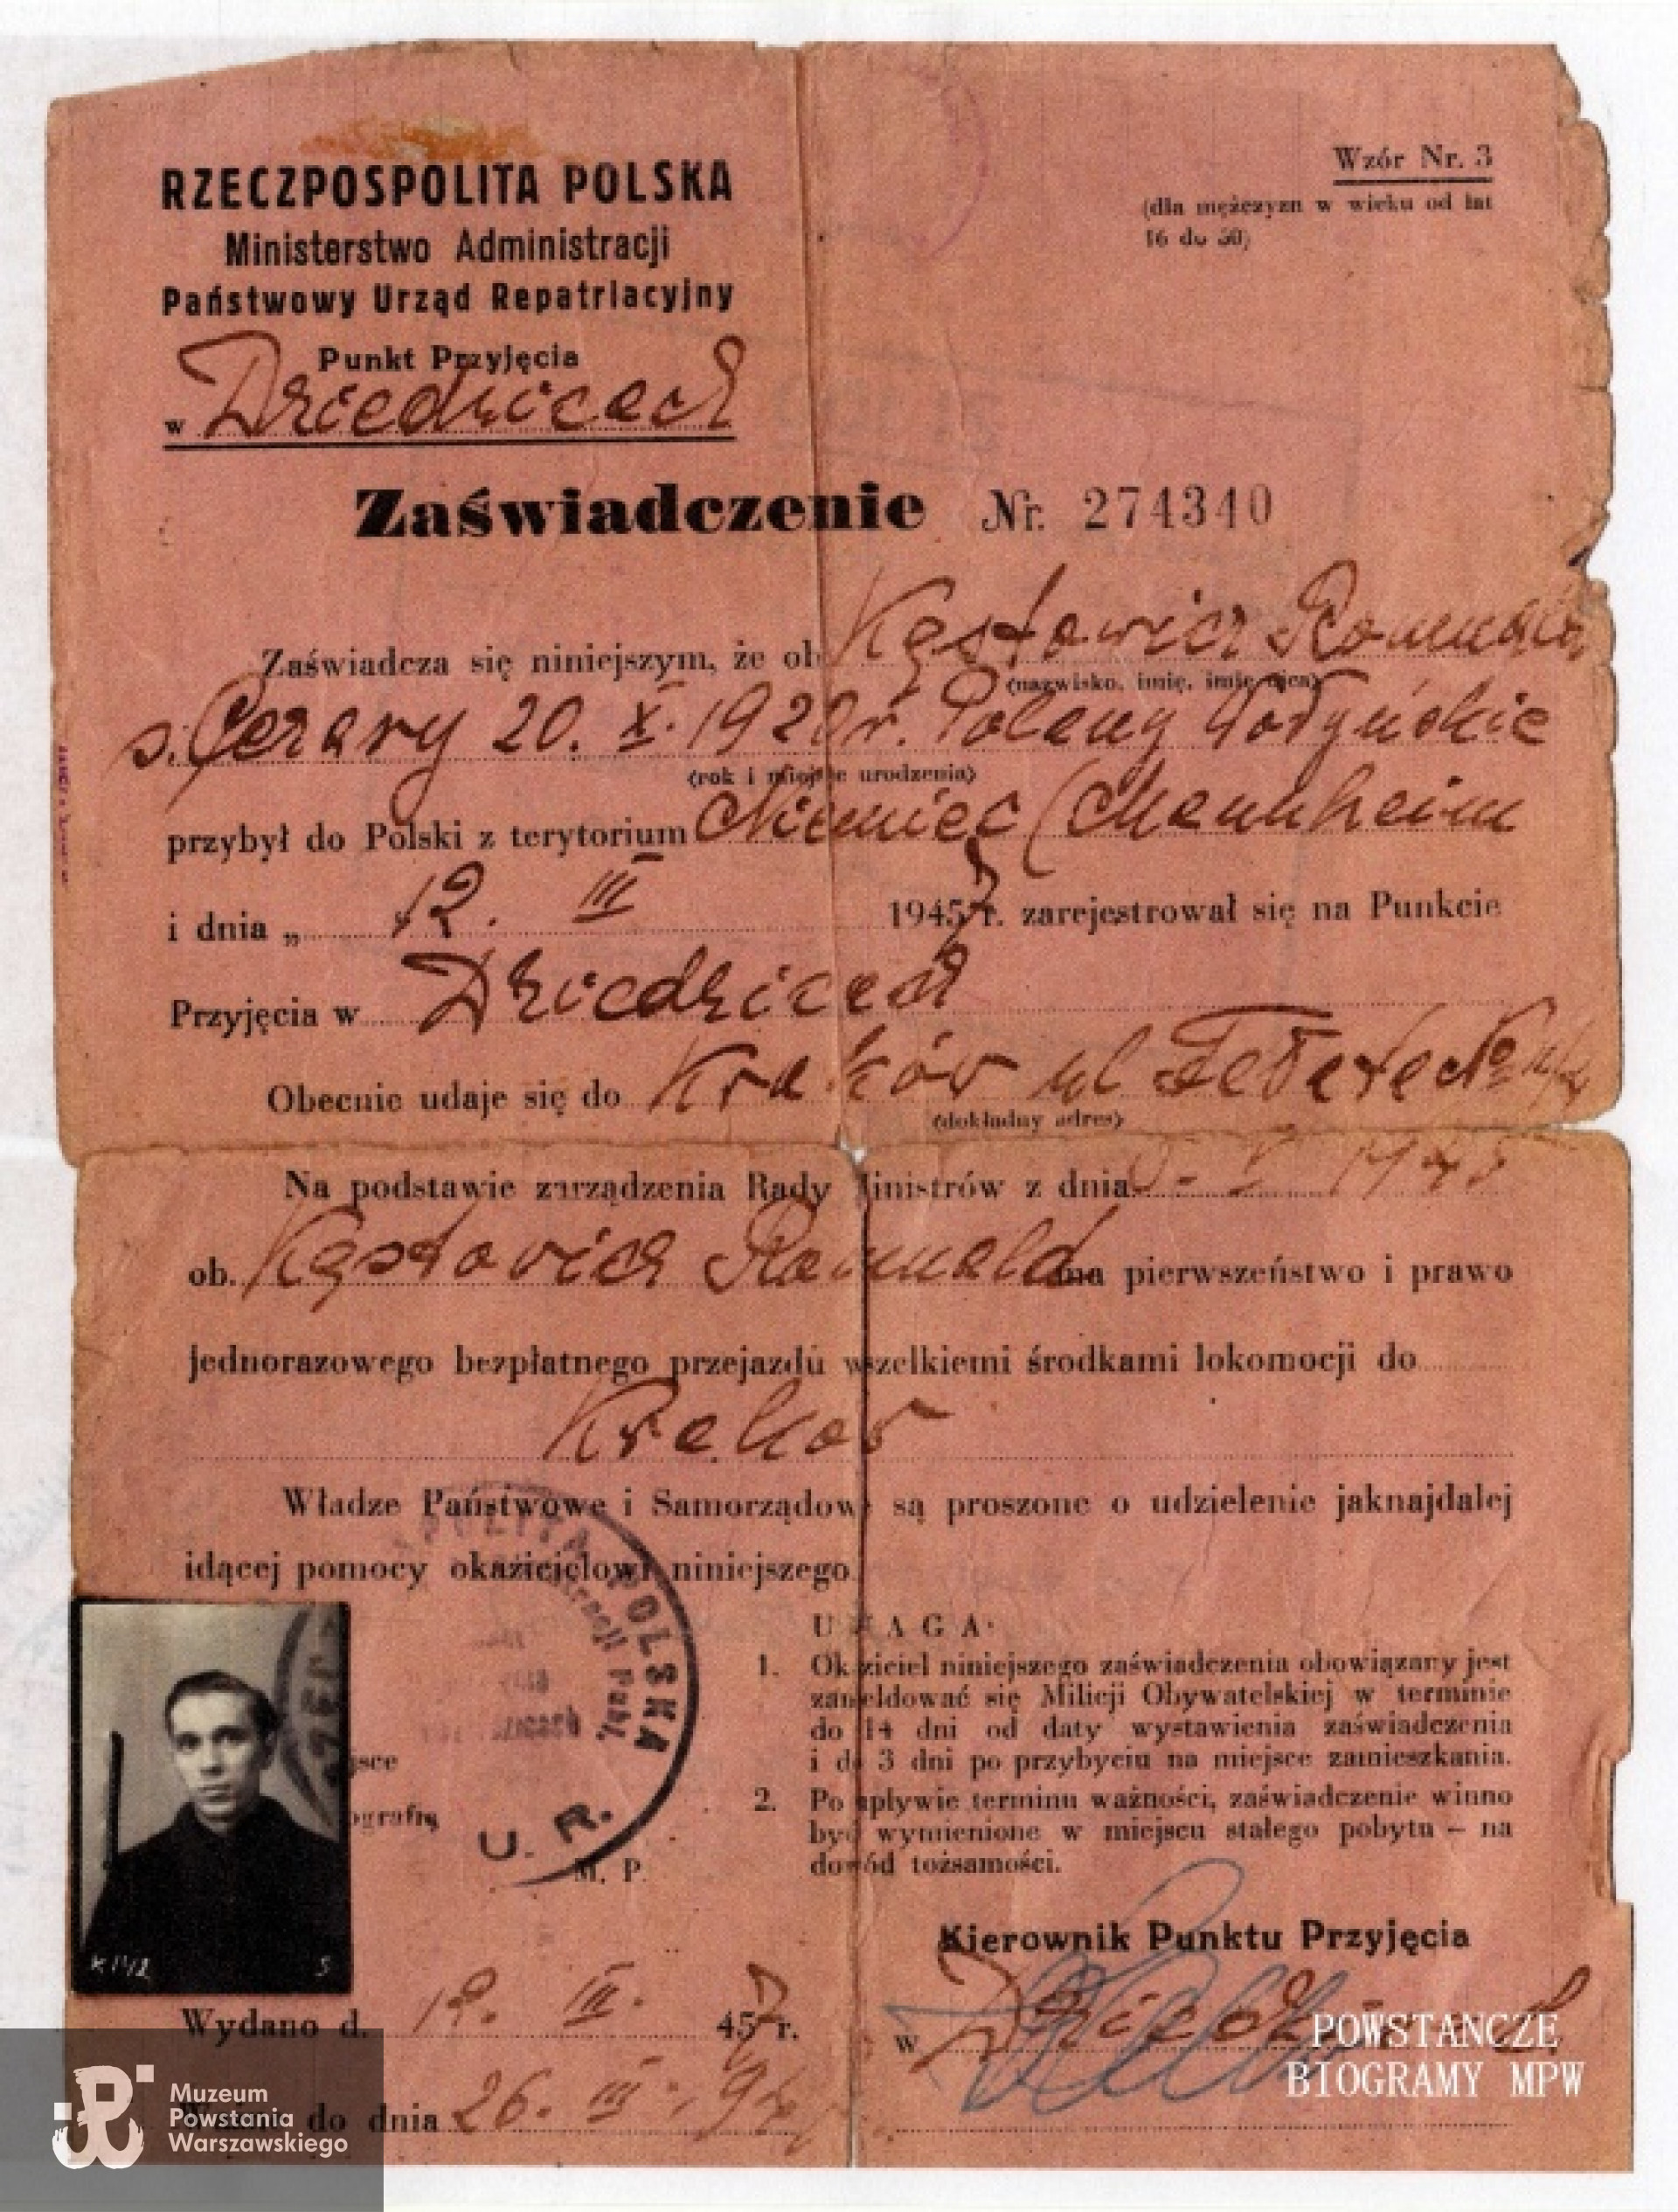 RZECZPOSPOLITA POLSKA
Ministerstwo Administracji
Państwowy Urząd Repatriacyjny
Punkt Przyjęcia
w Dziedzicach
Wzór Nr. 3
(dla mężczyzn w wieku od lat
16 do 50)
Zaświadczenie Nr. 274340
Zaświadcza się niniejszym, że ob. Kęstowicz Romuald
(nazwisko, imię, imię ojca)
s. Cezary 20. X. 1920 r. Polany Wołyńskie
(rok i miejsce urodzenia)
przybył do Polski z terytorium Niemiec (Mannheim
i dnia „ 12. III 1947 r. zarejestrował się na Punkcie
Przyjęcia w Dziedzicach
Obecnie udaje się do Kraków ul
(dokładny adres)
Na podstawie zarządzenia Rady Ministrów z dnia
ob. Kęstowicz Romuald ma pierwszeństwo i prawo
jednorazowego bezpłatnego przejazdu wszelkiemi środkami lokomocji do
Kraków
Władze Państwowe i Samorządowe są proszone o udzielenie jaknajdalej
idącej pomocy okazicielowi niniejszego.
POLSKA
Publ.
U. R.
M. P.
jsce
ografię
K1142 S
UWAGA:
1. Okaziciel niniejszego zaświadczenia obowiązany jest
zameldować się Milicji Obywatelskiej w terminie
do 14 dni od daty wystawienia zaświadczenia
i do 3 dni po przybyciu na miejsce zamieszkania.
2. Po upływie terminu ważności, zaświadczenie winno
być wymienione w miejscu stałego pobytu – na
dowód tożsamości.
Kierownik Punktu Przyjęcia
Wydano d. 12. III. 47 r.
w
do dnia 26. III. 947
Muzeum
Powstania
Warszawskiego
POWSTANCZE
BIOGRAMY MPW